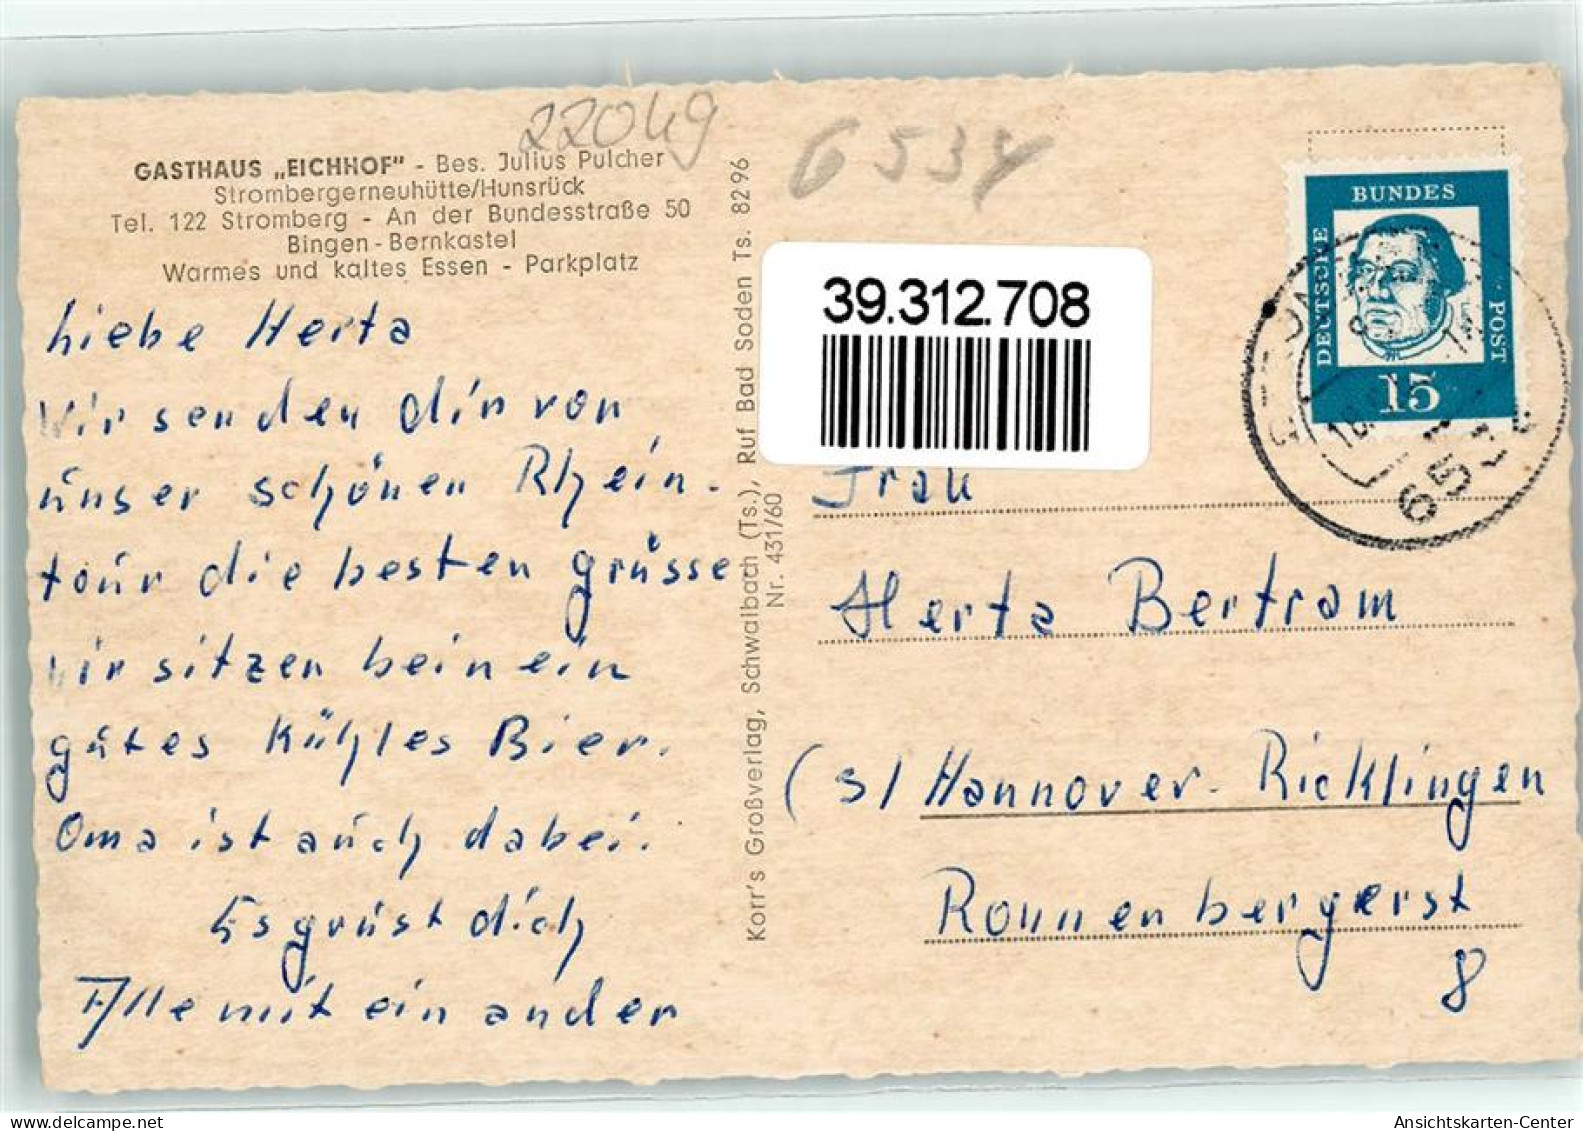 22049
6534
GASTHAUS „EICHHOF" - Bes. Julius Pulcher
Strombergerneuhütte/Hunsrück
Tel. 122 Stromberg - An der Bundesstraße 50
Bingen - Bernkastel
Warmes und kaltes Essen - Parkplatz
Liebe Herta
Wir senden dir von
unser schönen Rhein-
tour die besten Grüsse
wir sitzen bein ein
gutes Kühles Bier.
Oma ist auch dabei.
Es grüst dich
Alle mit ein ander
Korr's Großverlag, Schwalbach (Ts.), Ruf Bad Soden Ts. 82 96
Nr. 431/60
39.312.708
DEUTSCHE
BUNDES
POST
15
Frau
Herta Bertram
(3/ Hannover-Ricklingen
Ronnenbergerst
8
Ansichtskarten-Center